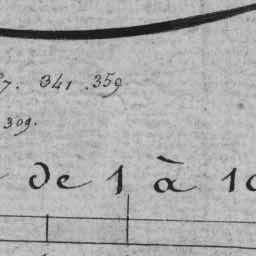 7. 341. 359
309.
de 1 à 10